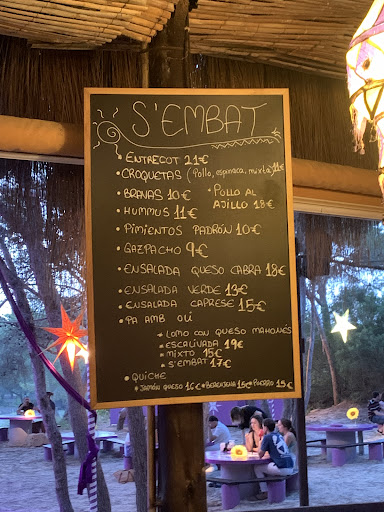 S'EMBAT
• ENTRECOT 21€
• CROQUETAS (Pollo, espinaca, mixta) 11€
• BRAVAS 10€ • POLLO AL AJILLO 18€
• HUMMUS 11€
• PIMIENTOS PADRÓN 10€
• GAZPACHO 9€
• ENSALADA QUESO CABRA 18€
• ENSALADA VERDE 13€
• ENSALADA CAPRESE 15€
• PA AMB OLI
• LOMO CON QUESO MAHONÉS
• ESCALIVADA 19€
• MIXTO 15€
• S'EMBAT 17€
• QUICHE
• JAMÓN QUESO 16€ • BERENJENA 15€ PUERRO 15€